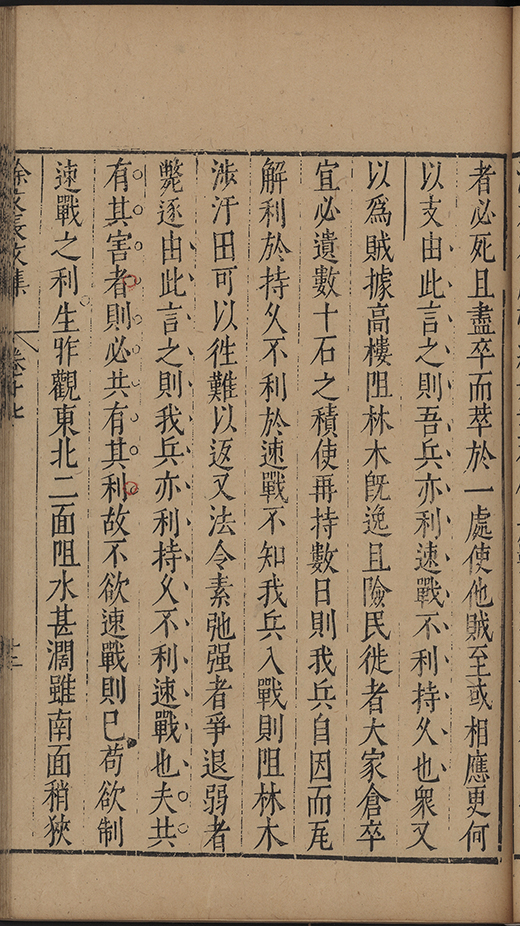 者必死且盡卒而萃於一處使他賊至或相應更何
以支由此言之則吾兵亦利速戰不利持久也衆又
以爲賊據高樓阻林木旣逸且險民徙者大家倉卒
宜必遺數十石之積使再持數日則我兵自因而尾
解利於持久不利於速戰不知我兵入戰則阻林木
渉汙田可以徃難以返又法令素弛强者爭退弱者
斃逐由此言之則我兵亦利持久不利速戰也夫共
有其害者則必共有其利故不欲速戰則已苟欲制
速戰之利生昨觀東北二面阻水甚濶雖南面稍狹
徐文長文集 卷十七 十三